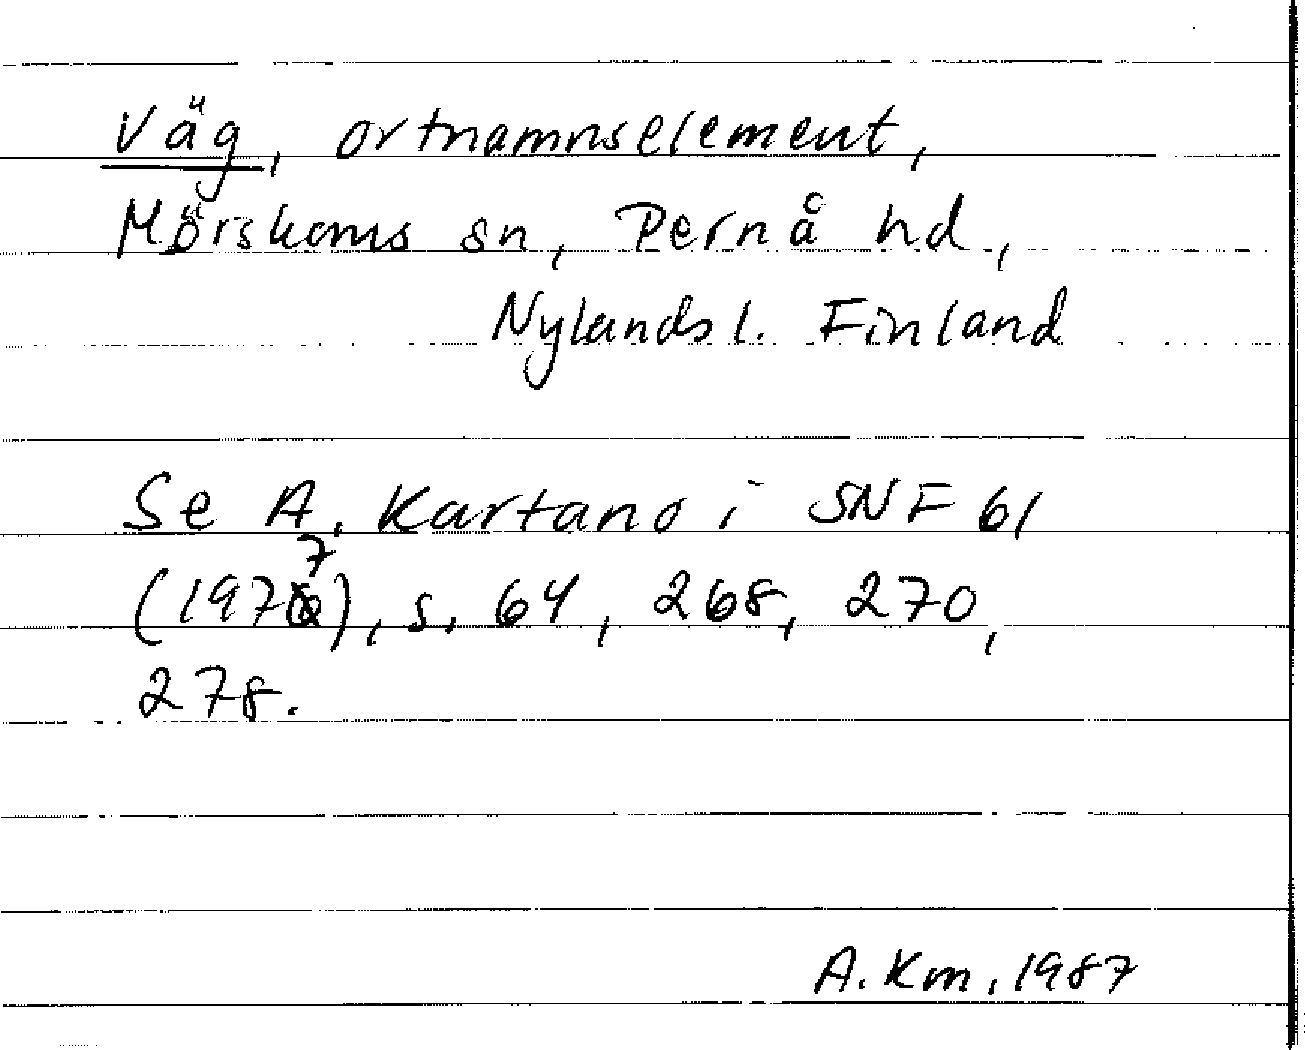 Väg, ortnamnselement,
Mörskoms sn, Pernå hd,
Nylands l. Finland
Se A. Kartano i SNF 61
(1977), s. 64, 268, 270,
278.
A. Km, 1987